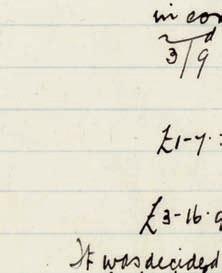 in
3/9
£1-7-
£3-16-9
It was decided